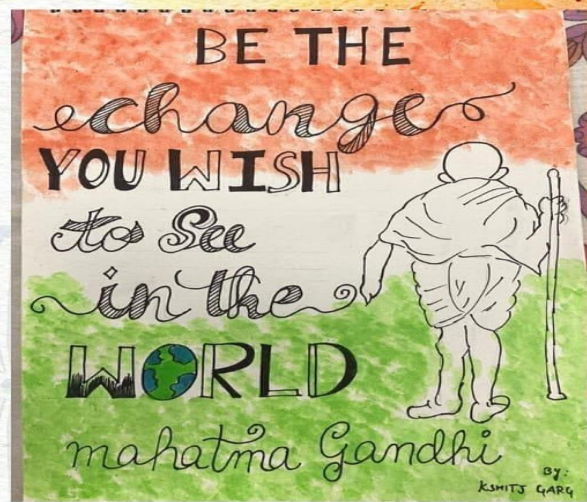 BE THE
change
YOU WISH
to See
in the
WORLD
mahatma Gandhi
BY:
KSHITJ GARG